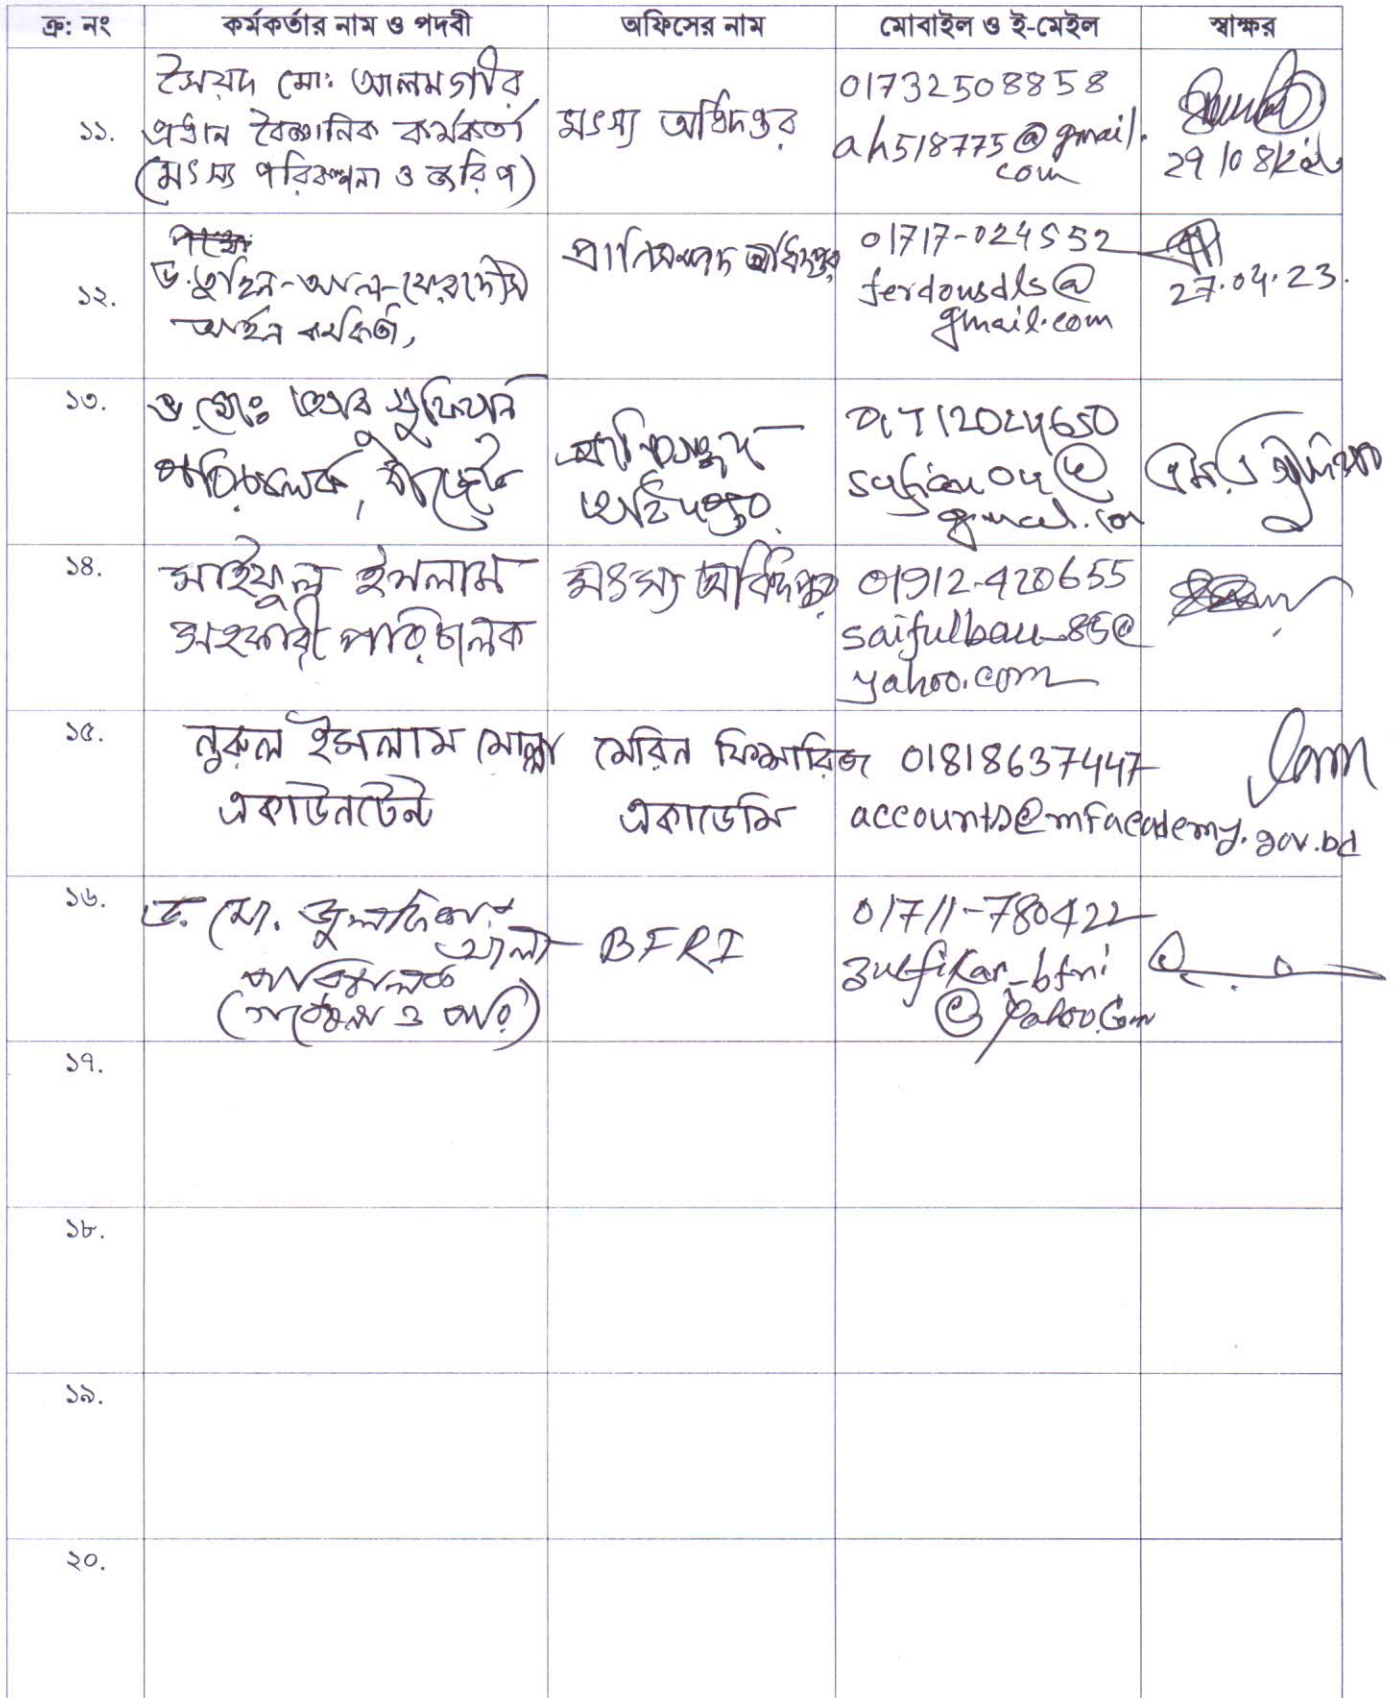 ক্র: নং কর্মকর্তার নাম ও পদবী অফিসের নাম মোবাইল ও ই-মেইল স্বাক্ষর
১১.
সৈয়দ মো: আলমগীর
প্রধান বৈজ্ঞানিক কর্মকর্তা
(মৎস্য পরিকল্পনা ও জরিপ)
মৎস্য অধিদপ্তর
01732508858
ah518775@gmail.
com
১২.
ড. তুহিন-আল-ফেরদৌসী
আইন কর্মকর্তা,
প্রাণিসম্পদ অধিদপ্তর
01717-024552
ferdousdls@
gmail.com
27.04.23.
১৩.
ড. মোঃ আবু সুফিয়ান
পরিচালক, বাজেট
প্রানিসম্পদ
অধিদপ্তর
01712024650
sufian04@
gmail.com
১৪.
সাইফুল ইসলাম
সহকারী পরিচালক
মৎস্য অধিদপ্তর
01912-420655
saifulbau_85@
yahoo.com
১৫.
নুরুল ইসলাম মোল্লা
একাউনটেন্ট
মেরিন ফিশারিজ
একাডেমি
01818637447
accounts@mfacademy.gov.bd
১৬.
ড. মো. জুলফিকার
আলী
পরিচালক
BFRI
01711-780422
zulfikar_bfri
@yahoo.com
১৭.
১৮.
১৯.
২০.